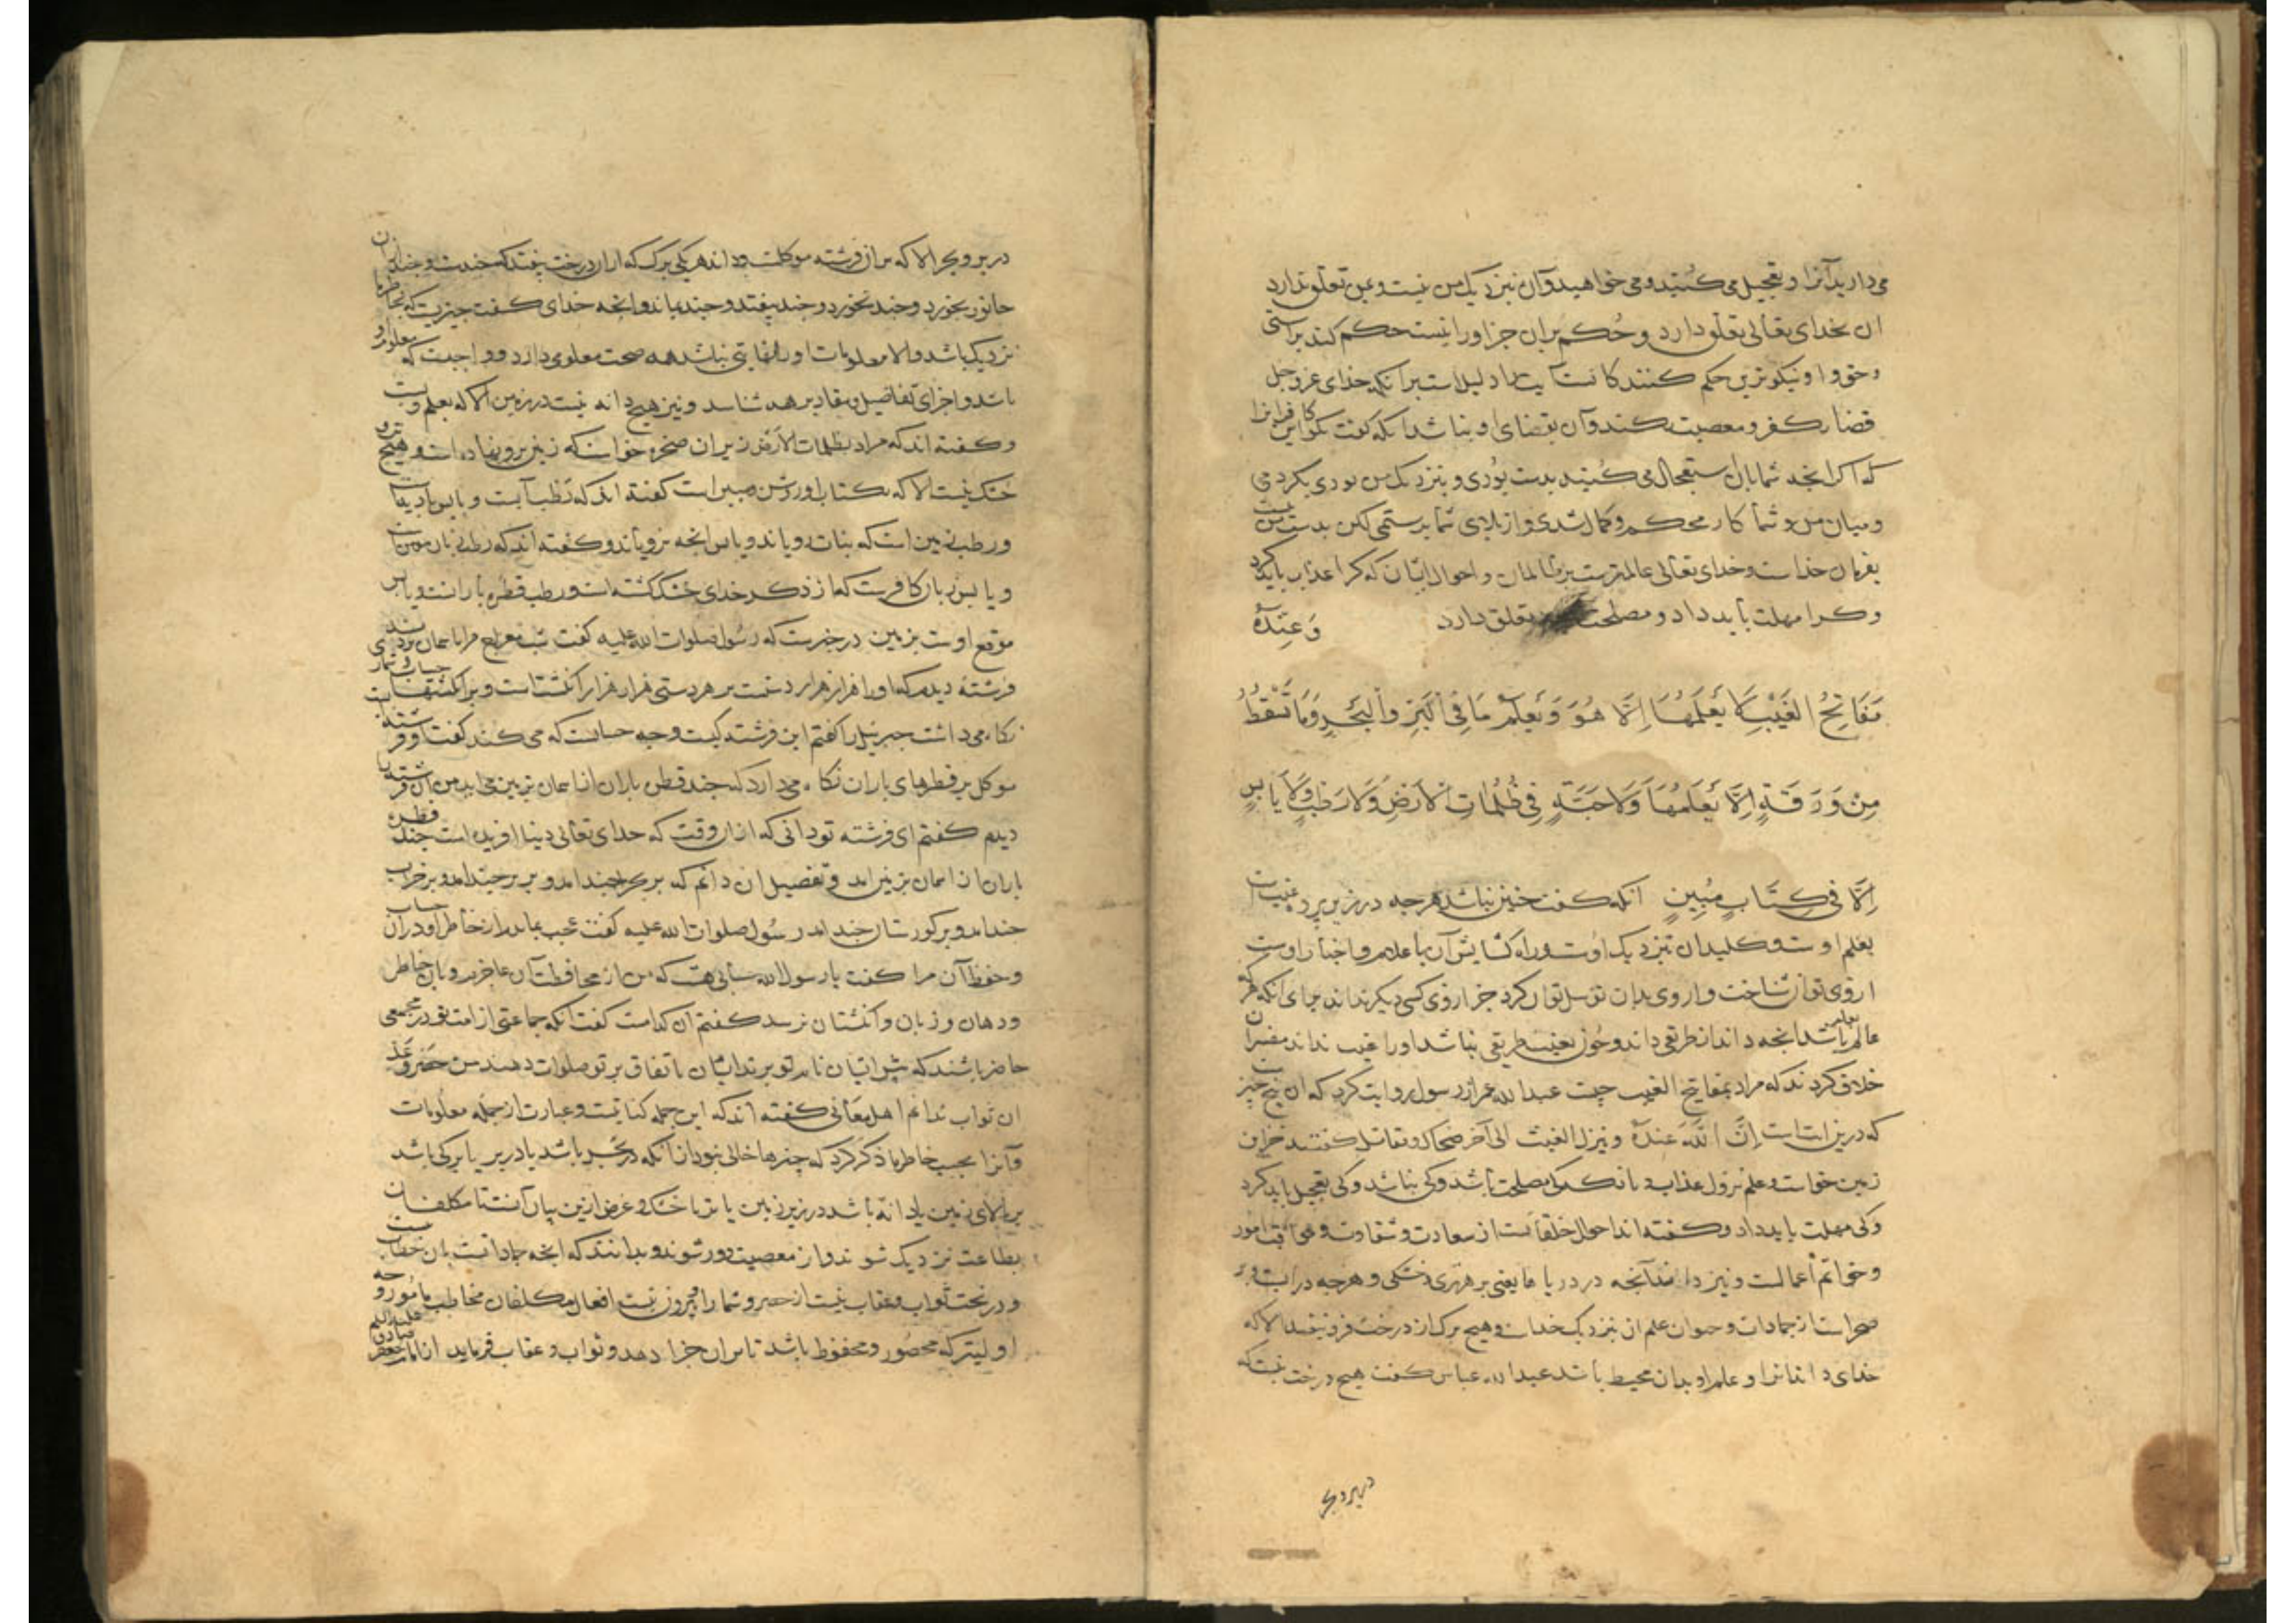 می دارید آنرا و تعجیل می کنید و می خواهید و آن بنزدیک من نیست و بمن تعلق ندارد
ان بخدای تعالی تعلق دارد و حُکم بران جز او را نیست حکم کند براستی
و حق و او نیکوترین حکم کنندکانست آیت دلیل است برانکه خدای عز و جل
قضا بکفر و معصیت نکند و آن بقضای او نباشد انکه کفت بکو این کافرانرا
که اکر انجه شما بان استعجال می کنید بدست بودی و بنزدیک من بودی بکردمی
و میان من و شما کار محکم و کمال شدی و از بلای شما برستمی لکن بدست من نیست
بفرمان خداست و خدای تعالی عالمترست بظالمان و احوال ایشان که کرا عذاب باید کرد
و کرا مهلت باید داد و مصلحت تعلق دارد وَعِنْدَهُ
مَفَاتِحُ الْغَيْبِ لَا يَعْلَمُهَا اِلَّا هُوَ وَيَعْلَمُ مَا فِي الْبَرِّ وَالْبَحْرِ وَمَا تَسْقُطُ
مِنْ وَرَقَةٍ اِلَّا يَعْلَمُهَا وَلَا حَبَّةٍ فِي ظُلُمَاتِ الْاَرْضِ وَلَا رَطْبٍ وَلَا يَابِسٍ
اِلَّا فِي كِتَابٍ مُبِينٍ انکه کفت جنین نباشد هرجه در زیر پرده غیب است
بعلم اوست و کلید آن بنزدیک اوست و راه کشایش آن با علام و اخبار اوست
از وی توان شناخت و از وی بدان توسل توان کرد جز از وی کسی دیکر نداند برای انکه هر که
عالم باشد بعلم انجه داند از طریقی داند و جون بغیب طریقی نباشد او را غیب نداند مفسران
خلاف کردند که مراد بمفاتیح الغیب جیست عبد الله عمر از رسول روایت کرد که ان پنج جیز
که درین ایت است اِنَّ اللهَ عِنْدَهُ و ینزل الغیث الی آخر ضحاک و مقاتل کفتند خزاین
زمین خواست و علم نزول عذاب و بانکه کی مصلحت باشد و کی نباشد و کی تعجیل باید کرد
و کی مهلت باید داد و کفته اند احوال خلقانست از سعادت و شقاوت و عواقب امور
و خواتم أعمالست و نیز داند آنجه در دریاها یعنی بر هر تری و خشکی و هرجه در آبست و بر
صحراست از جمادات و حیوان علم ان بنزدیک خداست و هیچ برک از درخت فرو نیفتد الا که
خدای داند انرا و علم او بدان محیط باشد عبد الله عباس کفت هیچ درخت نیست که
در بر و بحر
در بر و بحر الا که بران فرشته موکلست و داند هر یکی برک که ازان درخت بیفتد که جندست و جند ازان
جانور بخورد و جند نخورد و جند بیفتد و جند بماند و انجه خدای کفت جیزیست که بخاطر ما
نزدیک باشد والا معلومات او را نهایتی نباشد همه صحت معلومی دارد و واجبست که معلوم او
باشد و اجزای تفاصیل و مقادیر همه شناسد و نیز هیچ دانه نیست در زمین الا که بعلم ویست
و کفته اند که مراد بظلمات الارض زیر ان صخره خواست که زمین برو نهاده است و هیچ تر و
خشک نیست الا که بکتاب او روشن و مبین است کفته اند که رَطْب آبست و یابس بادیهاست
و رطب زمین است که نبات رویاند و یابس انجه نرویاند و کفته اند که رطب زبان مومنانست
و یابس زبان کافرست که از ذکر خدای خشک کشته است و رطب قطره بارانست و یابس
موقع اوست بزمین در خبرست که رسول صلوات الله علیه کفت شب معراج مرا باسمان بردند
فرشته دیدم که او را هزار هزار دستست بر هر دستی هزار هزار انکشتاست و بر انکشتها حساب و شمار
نکاه می داشت جبرئیل را کفتم این فرشته کیست و جه حسابست که می کند کفت او فرشته ایست
موکل بر قطرهای باران نکاه می دارد که جند قطره باران از اسمان بزمین می اید من آن فرشته را
دیدم کفتم ای فرشته تو دانی که ازان وقت که خدای تعالی دنیا افریده است جند قطره
باران از اسمان بزمین امد و تفصیل ان دانم که بر بحر جند امد و بر بر جند امد و بر خراب
جند امد و بر کورستان جند امد رسول صلوات الله علیه کفت عجب بماندم از خاطر او دران حساب
و حفظ آن مرا کفت یا رسول الله حسابی هست که من از محافظت آن عاجزم و بآن خاطر
و دهان و زبان و انکشتان نرسد کفتم ان کدامست کفت آنکه جماعتی از امت تو در مجمعی
حاضر باشند که پیش ایشان نام تو برند ایشان باتفاق بر تو صلوات دهند من حصر و عدّ
ان ثواب ندانم اهل معانی کفته اند که این جمله کنایتست و عبارت از جمله معلومات
و آنرا بحسب خاطر ما ذکر کرد که جیزها خالی نبود از آنکه در بحر باشد یا در بر یا برکی باشد
بر بالای زمین یا دانه باشد در زیر زمین یا تر یا خشک و غرض ازین بیان آنست تا مکلفان
بطاعت نزدیک شوند و از معصیت دور شوند و بدانند که انجه جمادانست بان خطاب نیست
و در تحت ثواب و عقاب نیست از حصر و شمار او بیرون نیست افعال مکلفان مخاطب مامور و
اولیتر که محصور و محفوظ باشد تا بران جزا دهد و ثواب و عقاب فرماید از امام جعفر صادق علیه السلم